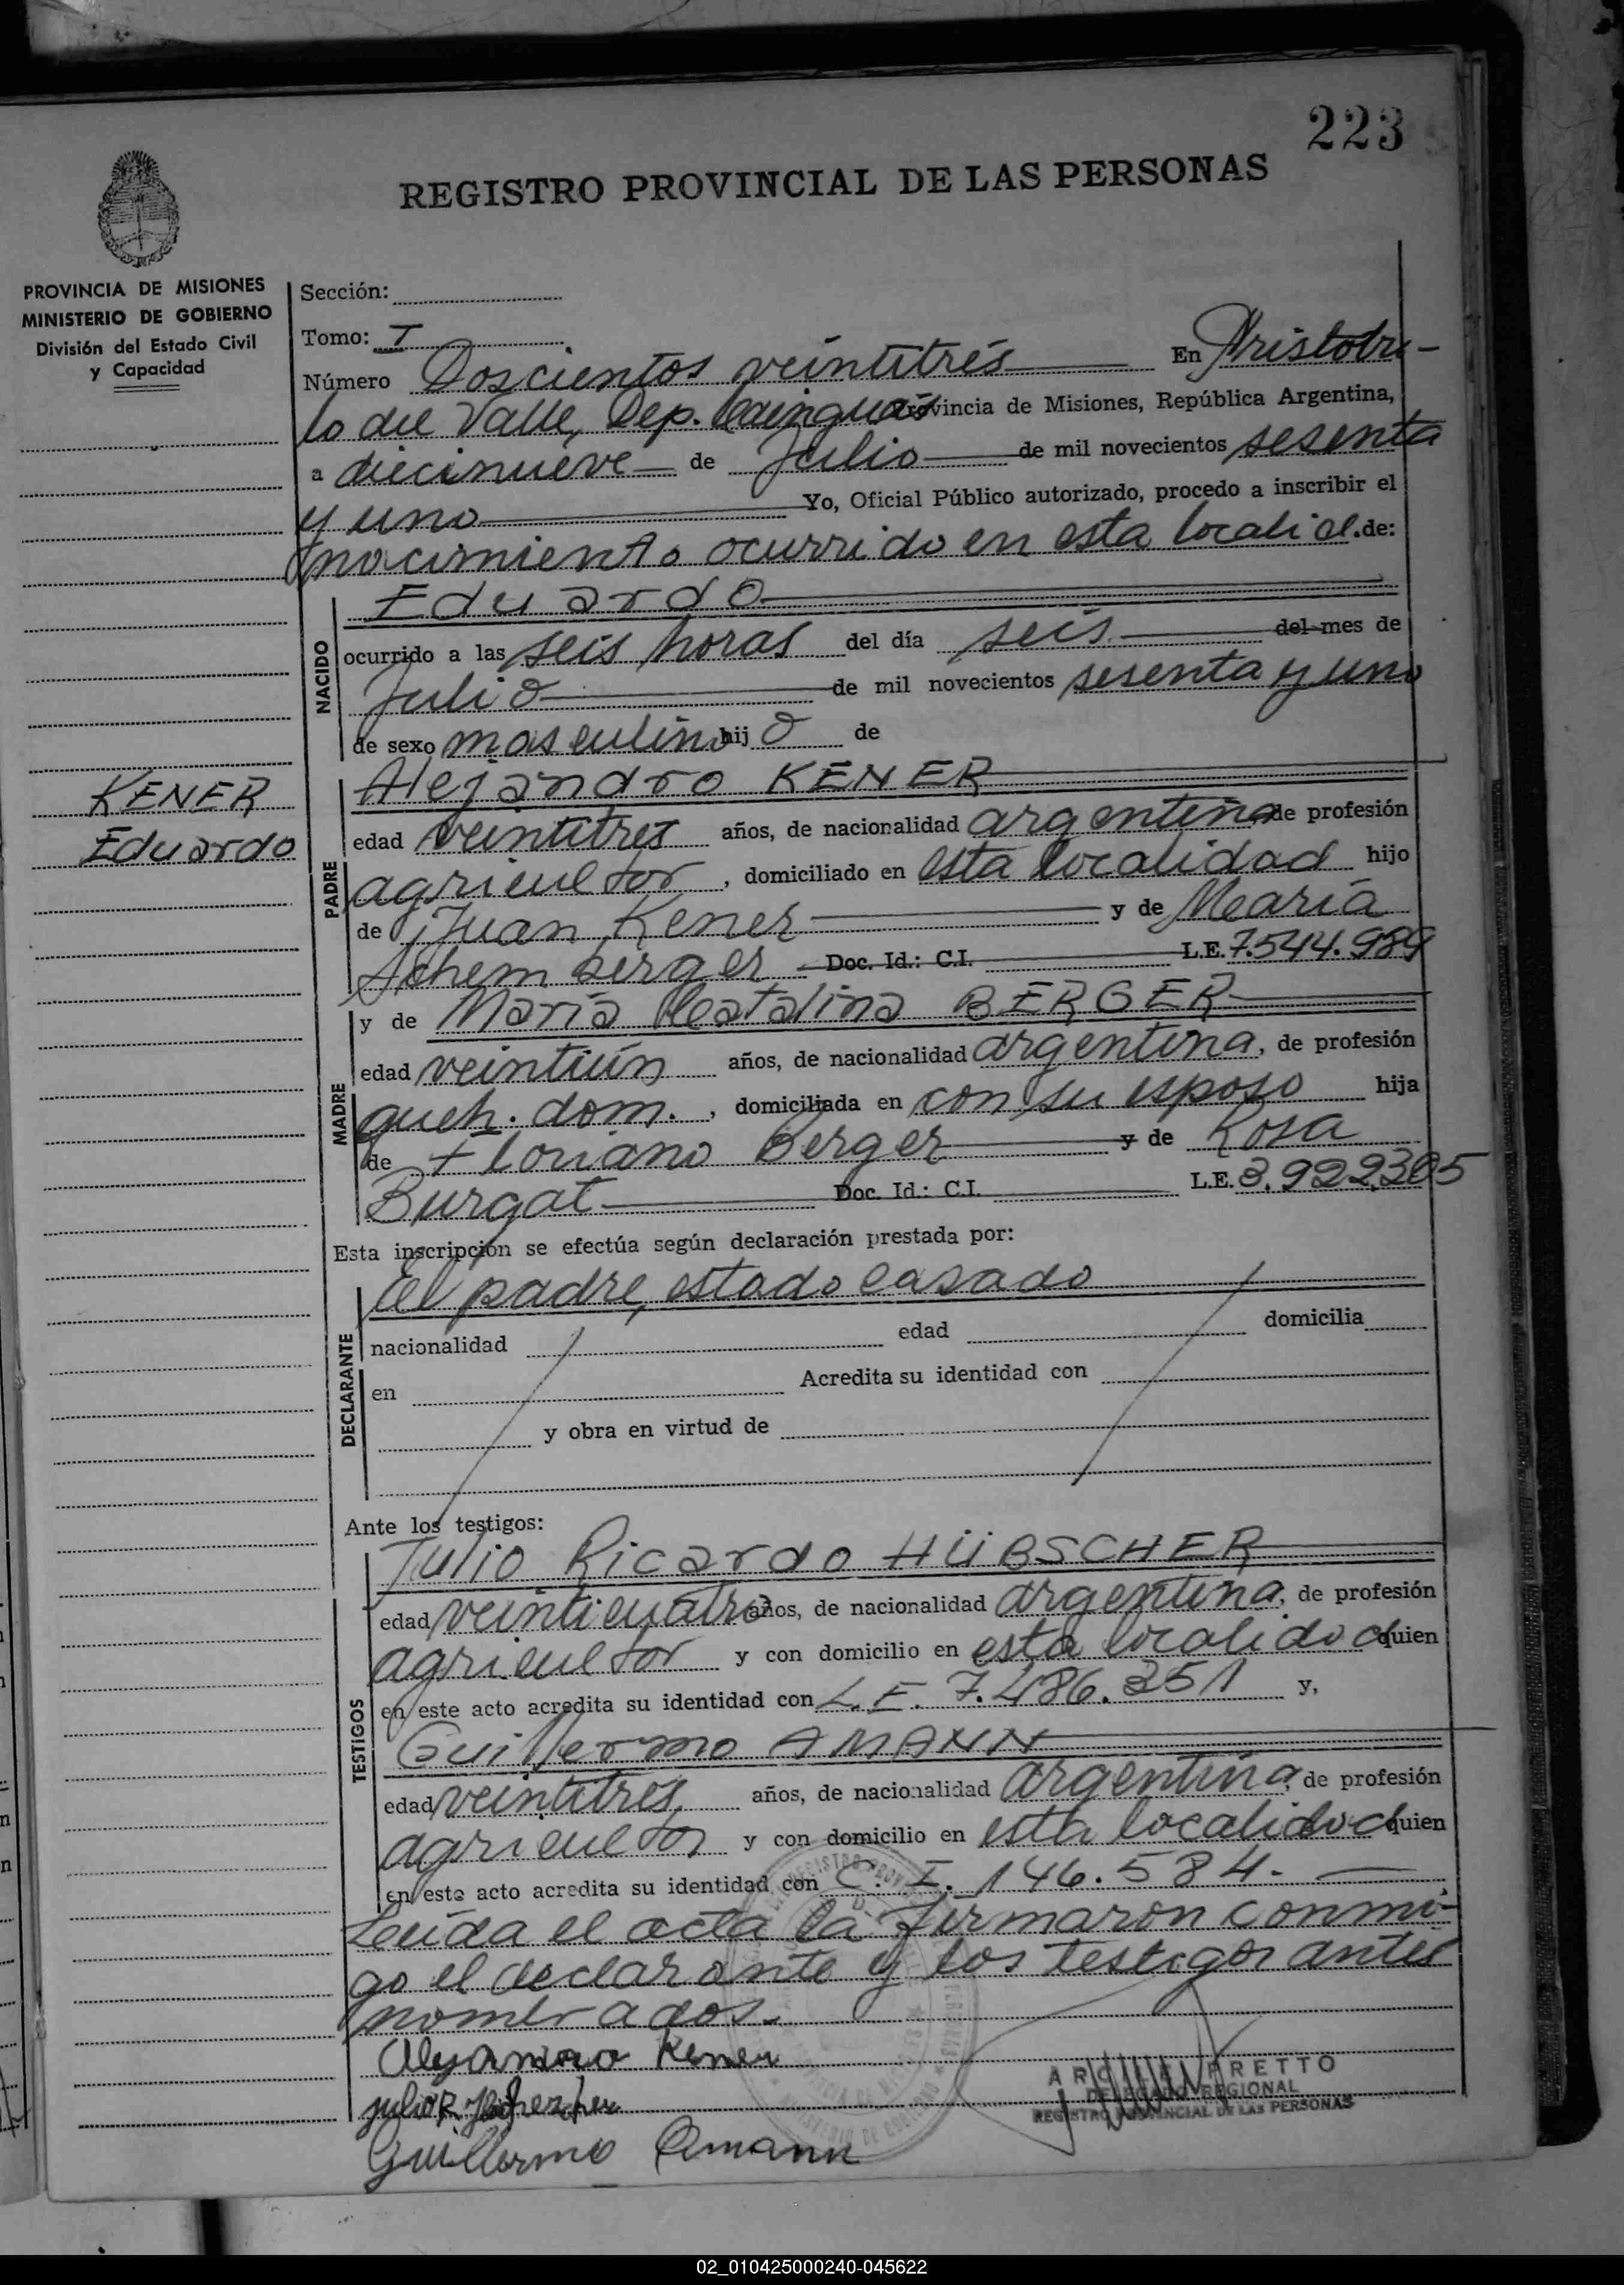 223
REGISTRO PROVINCIAL DE LAS PERSONAS
PROVINCIA DE MISIONES
MINISTERIO DE GOBIERNO
División del Estado Civil
y Capacidad
KENER
Eduardo
Sección:
Tomo: I
Número Doscientos veintitrés En Aristobu-
lo del Valle, Dep. Cainguás Provincia de Misiones, República Argentina,
a diecinueve de Julio de mil novecientos sesenta
y uno Yo, Oficial Público autorizado, procedo a inscribir el
nacimiento ocurrido en esta localid. de:
NACIDO
Eduardo
ocurrido a las seis horas del día seis del mes de
Julio de mil novecientos sesenta y uno
de sexo masculino hijo de
PADRE
Alejandro KENER
edad veintitres años, de nacionalidad argentina de profesión
agricultor, domiciliado en esta localidad hijo
de Juan Kener y de María
Schemberger Doc. Id.: C.I. L.E. 7.544.989
MADRE
y de María Catalina BERGER
edad veintiún años, de nacionalidad argentina, de profesión
queh. dom., domiciliada en con su esposo hija
de Floriano Berger y de Rosa
Burgat Doc. Id.: C.I. L.E. 3.922.305
Esta inscripción se efectúa según declaración prestada por:
DECLARANTE
el padre, estado casado
nacionalidad edad domicilia
en Acredita su identidad con
y obra en virtud de
Ante los testigos:
TESTIGOS
Julio Ricardo HÜBSCHER
edad veinticuatro años, de nacionalidad argentina, de profesión
agricultor y con domicilio en esta localidad quien
en este acto acredita su identidad con L.E. 7.486.351 y,
Guillermo AMANN
edad veintitrés, años, de nacionalidad argentina, de profesión
agricultor y con domicilio en esta localidad quien
en este acto acredita su identidad con C. I. 146.584.
Leída el acta la firmaron conmi-
go el declarante y los testigos antes
nombrados.
Alejandro Kener
Julio R
Guillermo Amann
PRETTO
DELEGADO REGIONAL
REGISTRO PROVINCIAL DE LAS PERSONAS
02_010425000240-045622